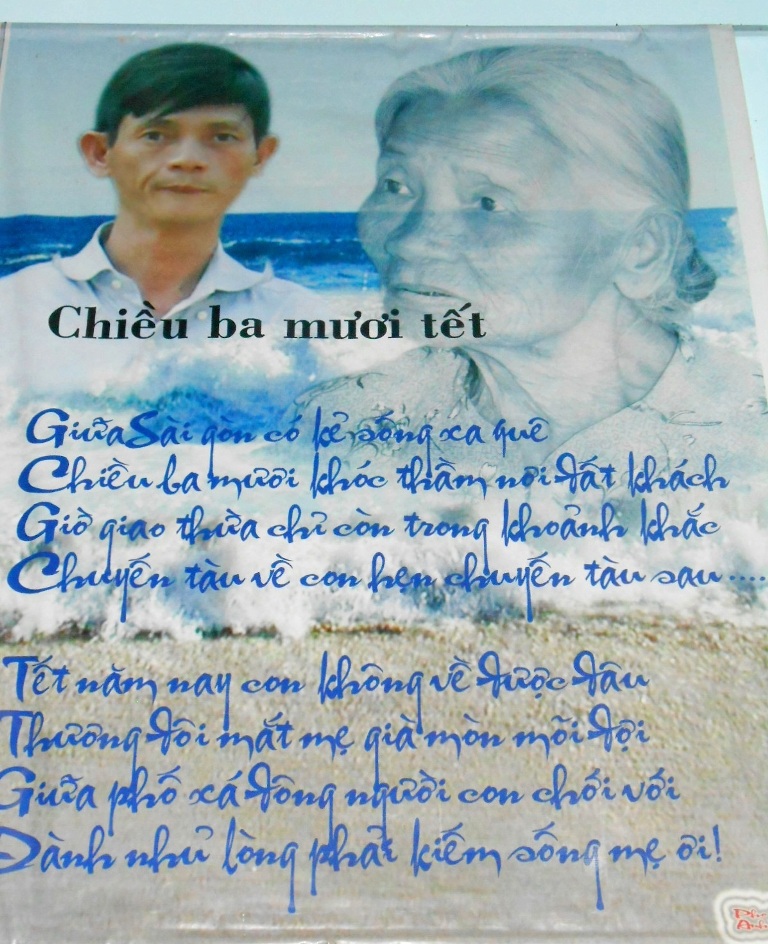 Chiều ba mươi tết
Giữa Sài gòn có kẻ sống xa quê
Chiều ba mươi khóc thầm nơi đất khách
Giờ giao thừa chỉ còn trong khoảnh khắc
Chuyến tàu về con hẹn chuyến tàu sau....
Tết năm nay con không về được đâu
Thương đôi mắt mẹ già mòn mõi đợi
Giữa phố xá đông người con chới với
Dành nhủ lòng phải kiếm sống mẹ ơi!